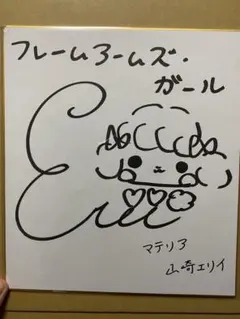 フレームアームズ・
ガール
Eri
マテリア
山崎エリイ